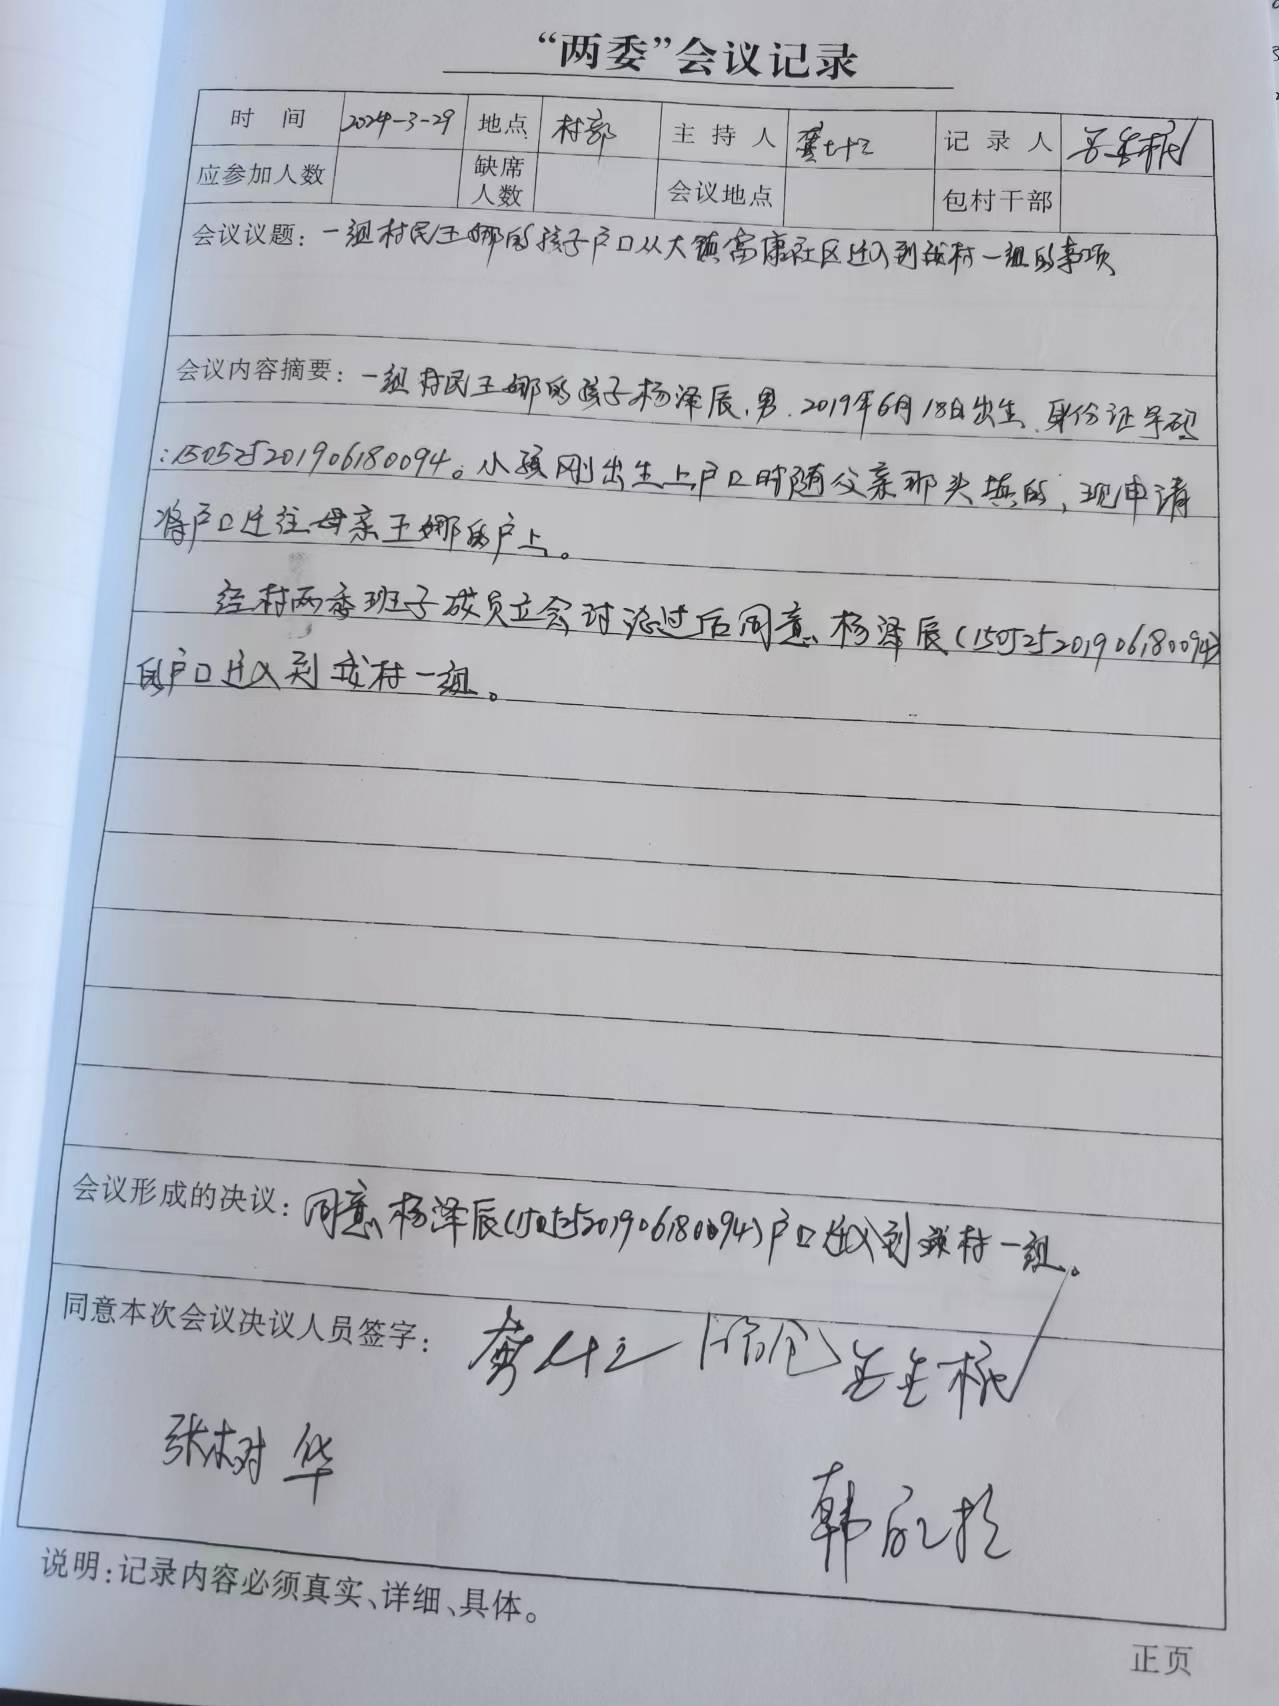 “两委”会议记录
时 间 2024-3-29 地点 村部 主 持 人 记 录 人
应参加人数 缺席人数 会议地点 包村干部
会议议题：一组村民王娜的孩子户口从大镇富康社区迁入到我村一组的事项
会议内容摘要：一组村民王娜的孩子杨泽辰，男，2019年6月18日出生，身份证号码
：150525201906180094。小孩刚出生上户口时随父亲那头填的，现申请
将户口迁往母亲王娜的户上。
经村两委班子成员立会讨论过后同意杨泽辰(150525201906180094)
的户口迁入到我村一组。
会议形成的决议：同意杨泽辰(150525201906180094)户口迁入到我村一组。
同意本次会议决议人员签字：
张树华
韩
说明：记录内容必须真实、详细、具体。
正页